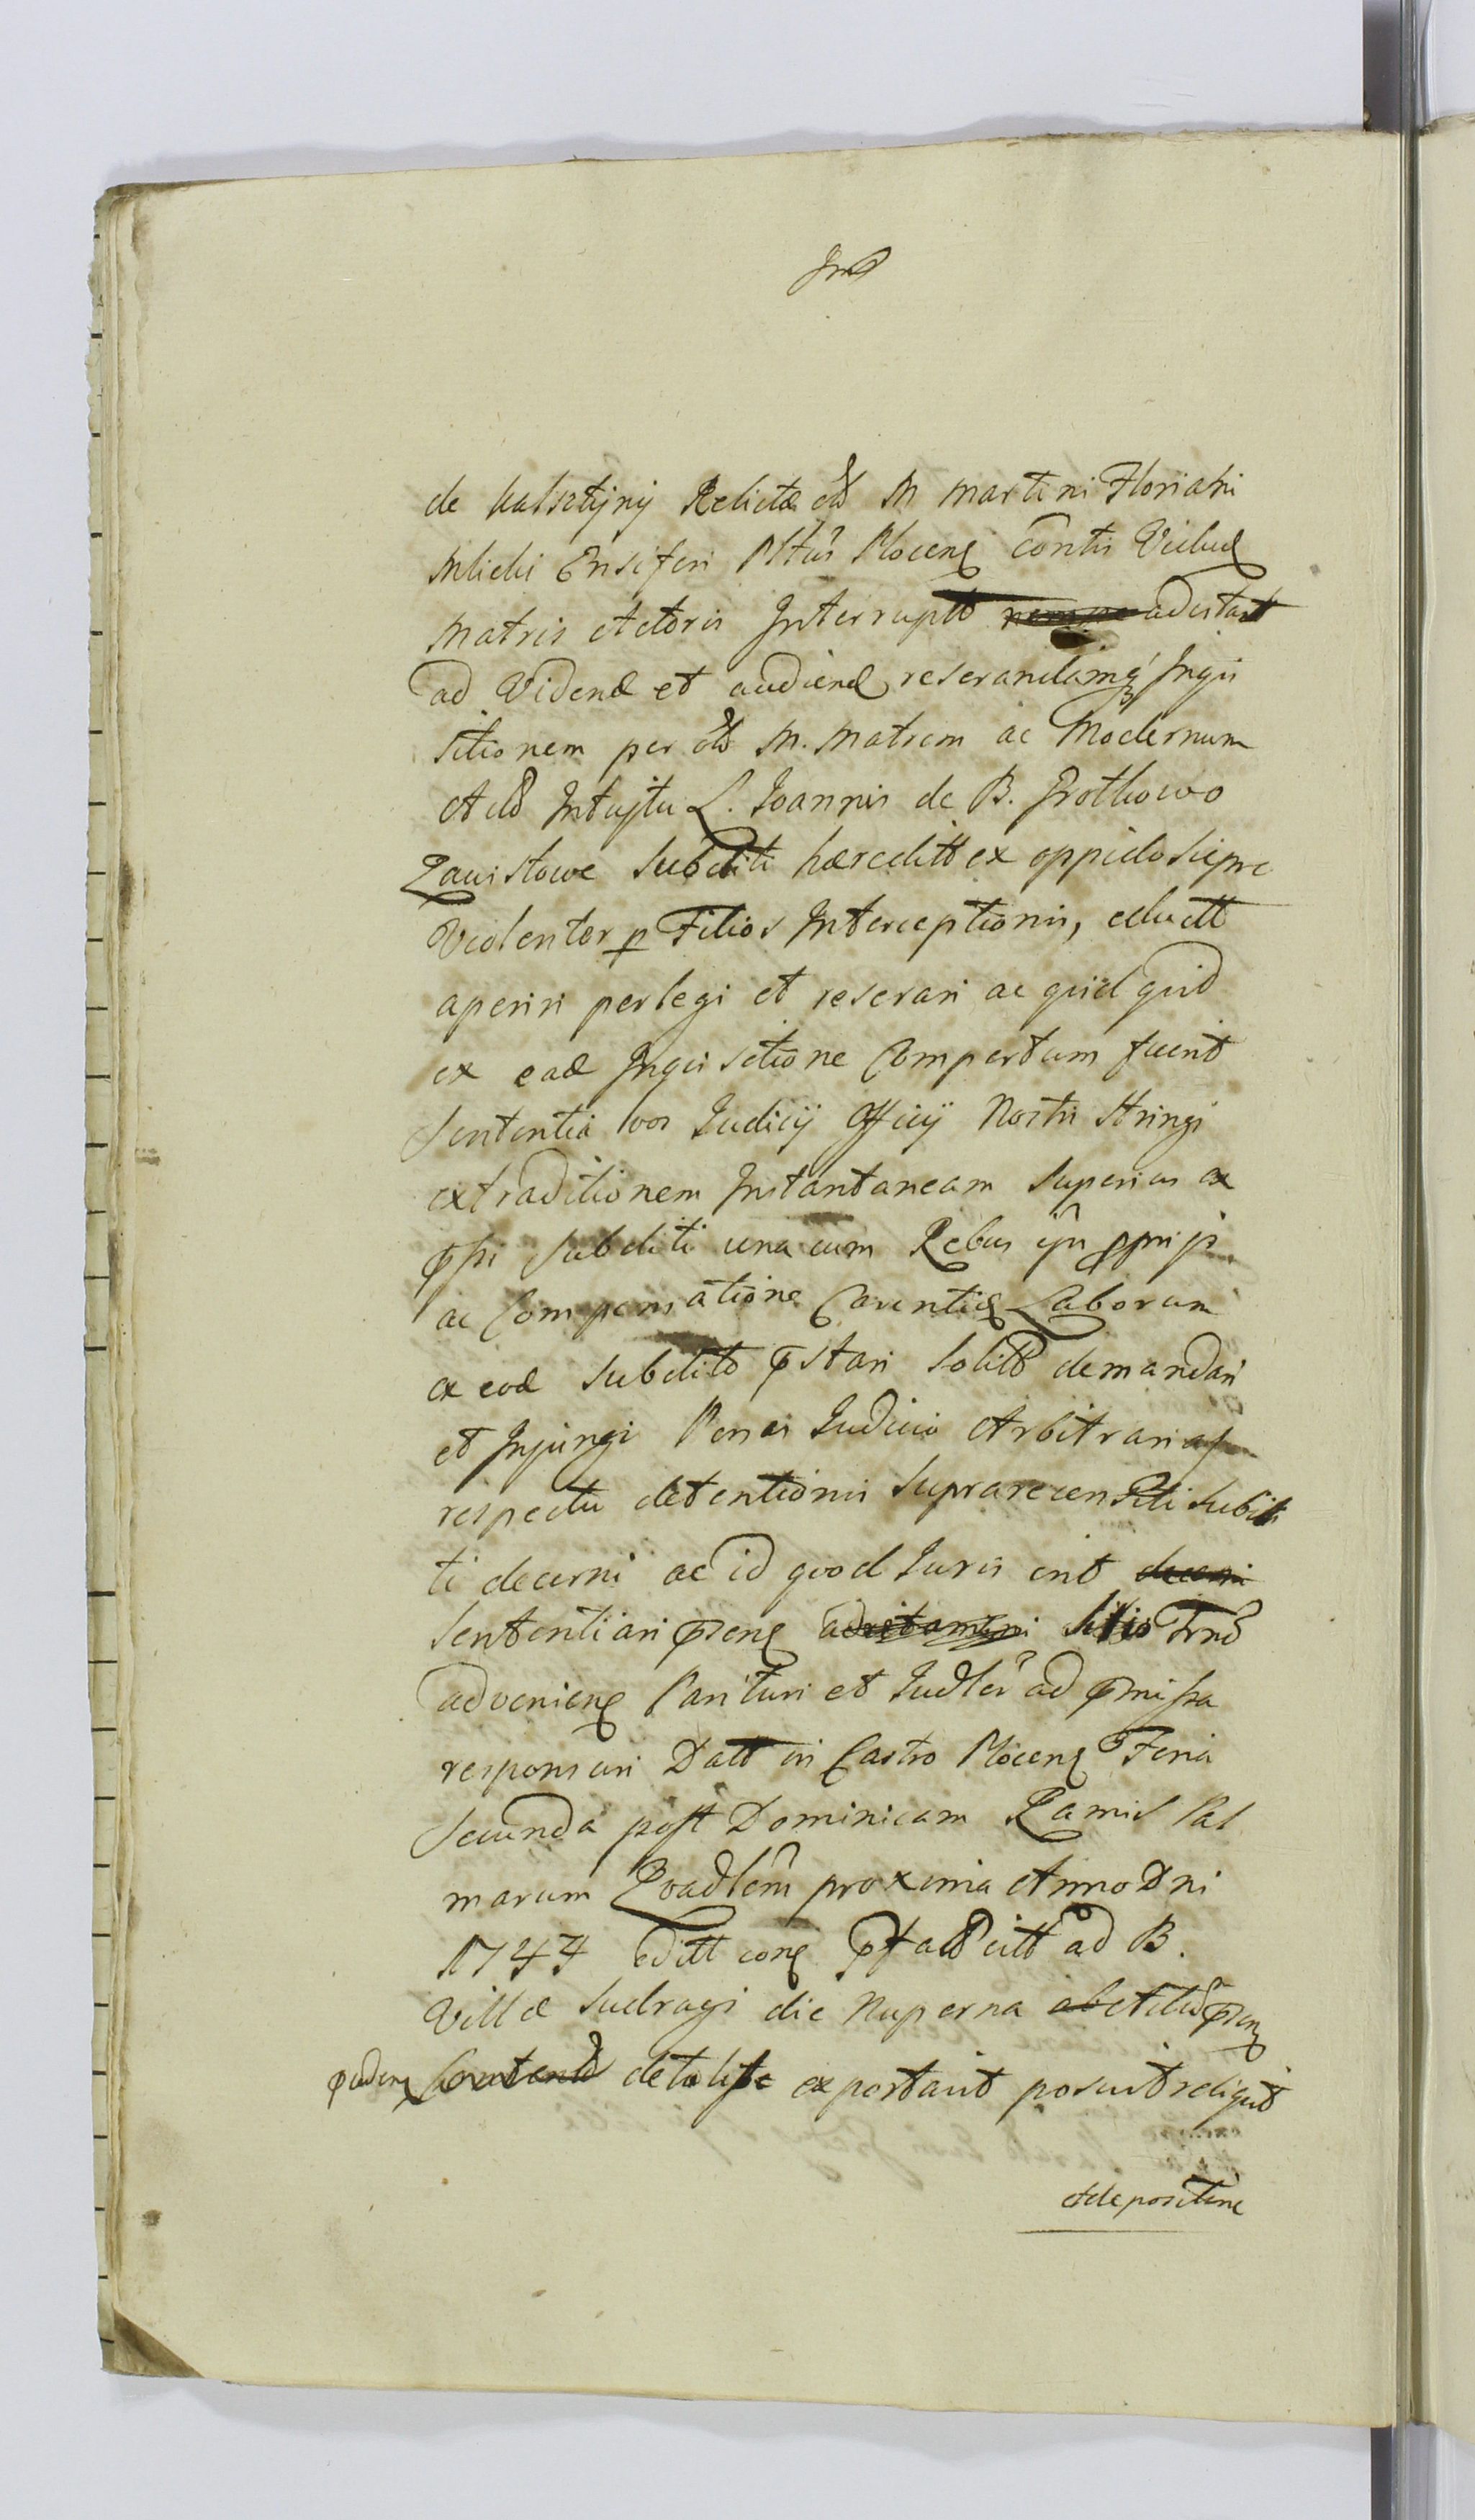 de Kalsztyny Relictæ olb M Martini Floriani
Mlicki Ensiferi Pltus Plocens Contis Vidud
Matris Actoris Interrupto adcitat
ad Vidend et audiend reserandamq Inqui
sitionem per olb M. Matrem ac Modernum
Intuitu L. Joannis de B. Grothowo
Zawistowe Subditi hæreditt ex oppido Sieprc
Violenter p Filios Interceptionis, eductt
aperiri perlegi et reserari ac quid quid
ex ead Inquisitione Compertum fuerit
Sententia vos Judicij Officij Nostri Stringi
extraditionem Instantaneam superius ex
pssi Subditi una cum Rebus ijs pprijs
ac Compensatione Carentiæ Laborum
ex eod Subdito pstari solitt demandari
et Injungi Penas Judicio Arbitrarias
respectu detentionis Suprarecensiti Subdi
ti decerni ac id quod Juris erit decerni
Sententiari psens Trno
adveniens Parituri et Judlr ad pmissa
responsuri Datt in Castro Plocens Feria
Secunda post Dominicam Ramis Pal
marum Qvadlem proxima Anno Dni
1744 Editt cons citt ad B.
Villæ Sudragi die Nuperna psen
Contento detulisse exportavit posuit reliquit
et depositione